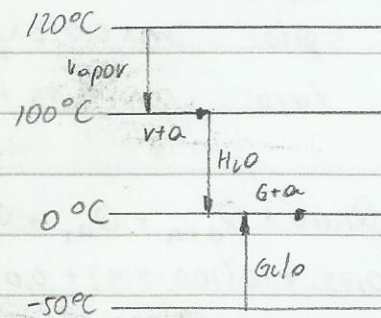 120°C
vapor
100°C
v+a
H₂O
G+a
0°C
Gelo
-50°C